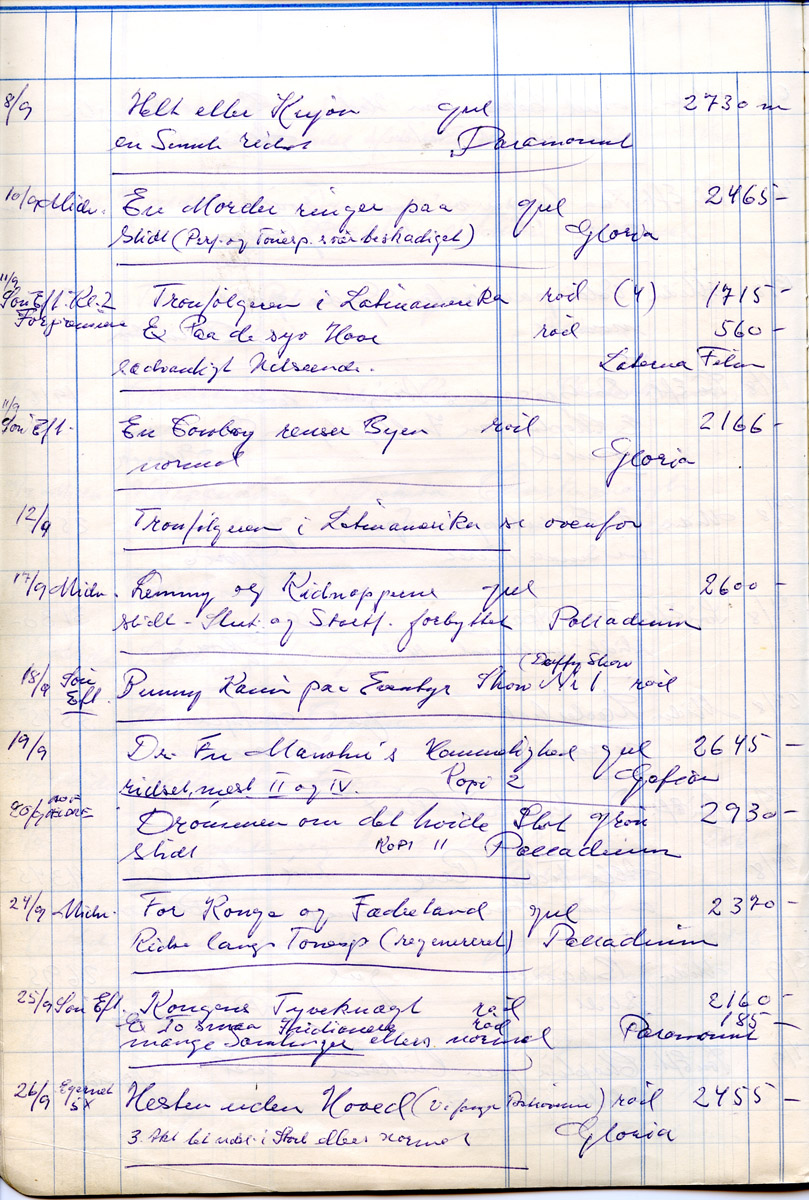 8/9 Helt eller Kujon gul 2730 m
en Smule ridset Paramount
10/9 Midn. En Morder ringer paa gul 2465 -
Slidt (Perf. og Tonesp. svær beskadiget) Gloria
11/9
Søn Eft. Kl. 2 Tronfølgeren i Latinamerika rød (4) 1715 -
& Paa de syv Have rød 560 -
sædvanligt Udseende. Laterna Film
11/9
Søn Eft. En Cowboy renser Byen rød 2166 -
normal Gloria
12/9 Tronfølgeren i Latinamerika se ovenfor
17/9 Midn. Lemmy og Kidnapperne gul 2600 -
slidt - Slut. og Startf. forbyttet Palladium
(Daffy Show
18/9 Søn Eft. Bunny Kanin paa Eventyr Show Nr 1 rød
19/9 Dr. Fu Manchu's Hemmelighed gul 2645 -
ridset, mest II og IV. Kopi 2 Gefion
20/9 Drømmen om det hvide Slot grøn 2930 -
Slidt KOPI 11 Palladium
24/9 Midn. For Konge og Fædreland gul 2370 -
Ridse langs Tonesp (regenereret) Palladium
25/9 Søn Eft. Kongens Tyveknægt rød 2160 -
& To smaa Indianere rød 185 -
mange Samlinger ellers normal Paramount
26/9 Egernet 5x Hesten uden Hoved ( ) rød 2455 -
3. Akt let ridset i Start ellers normal Gloria